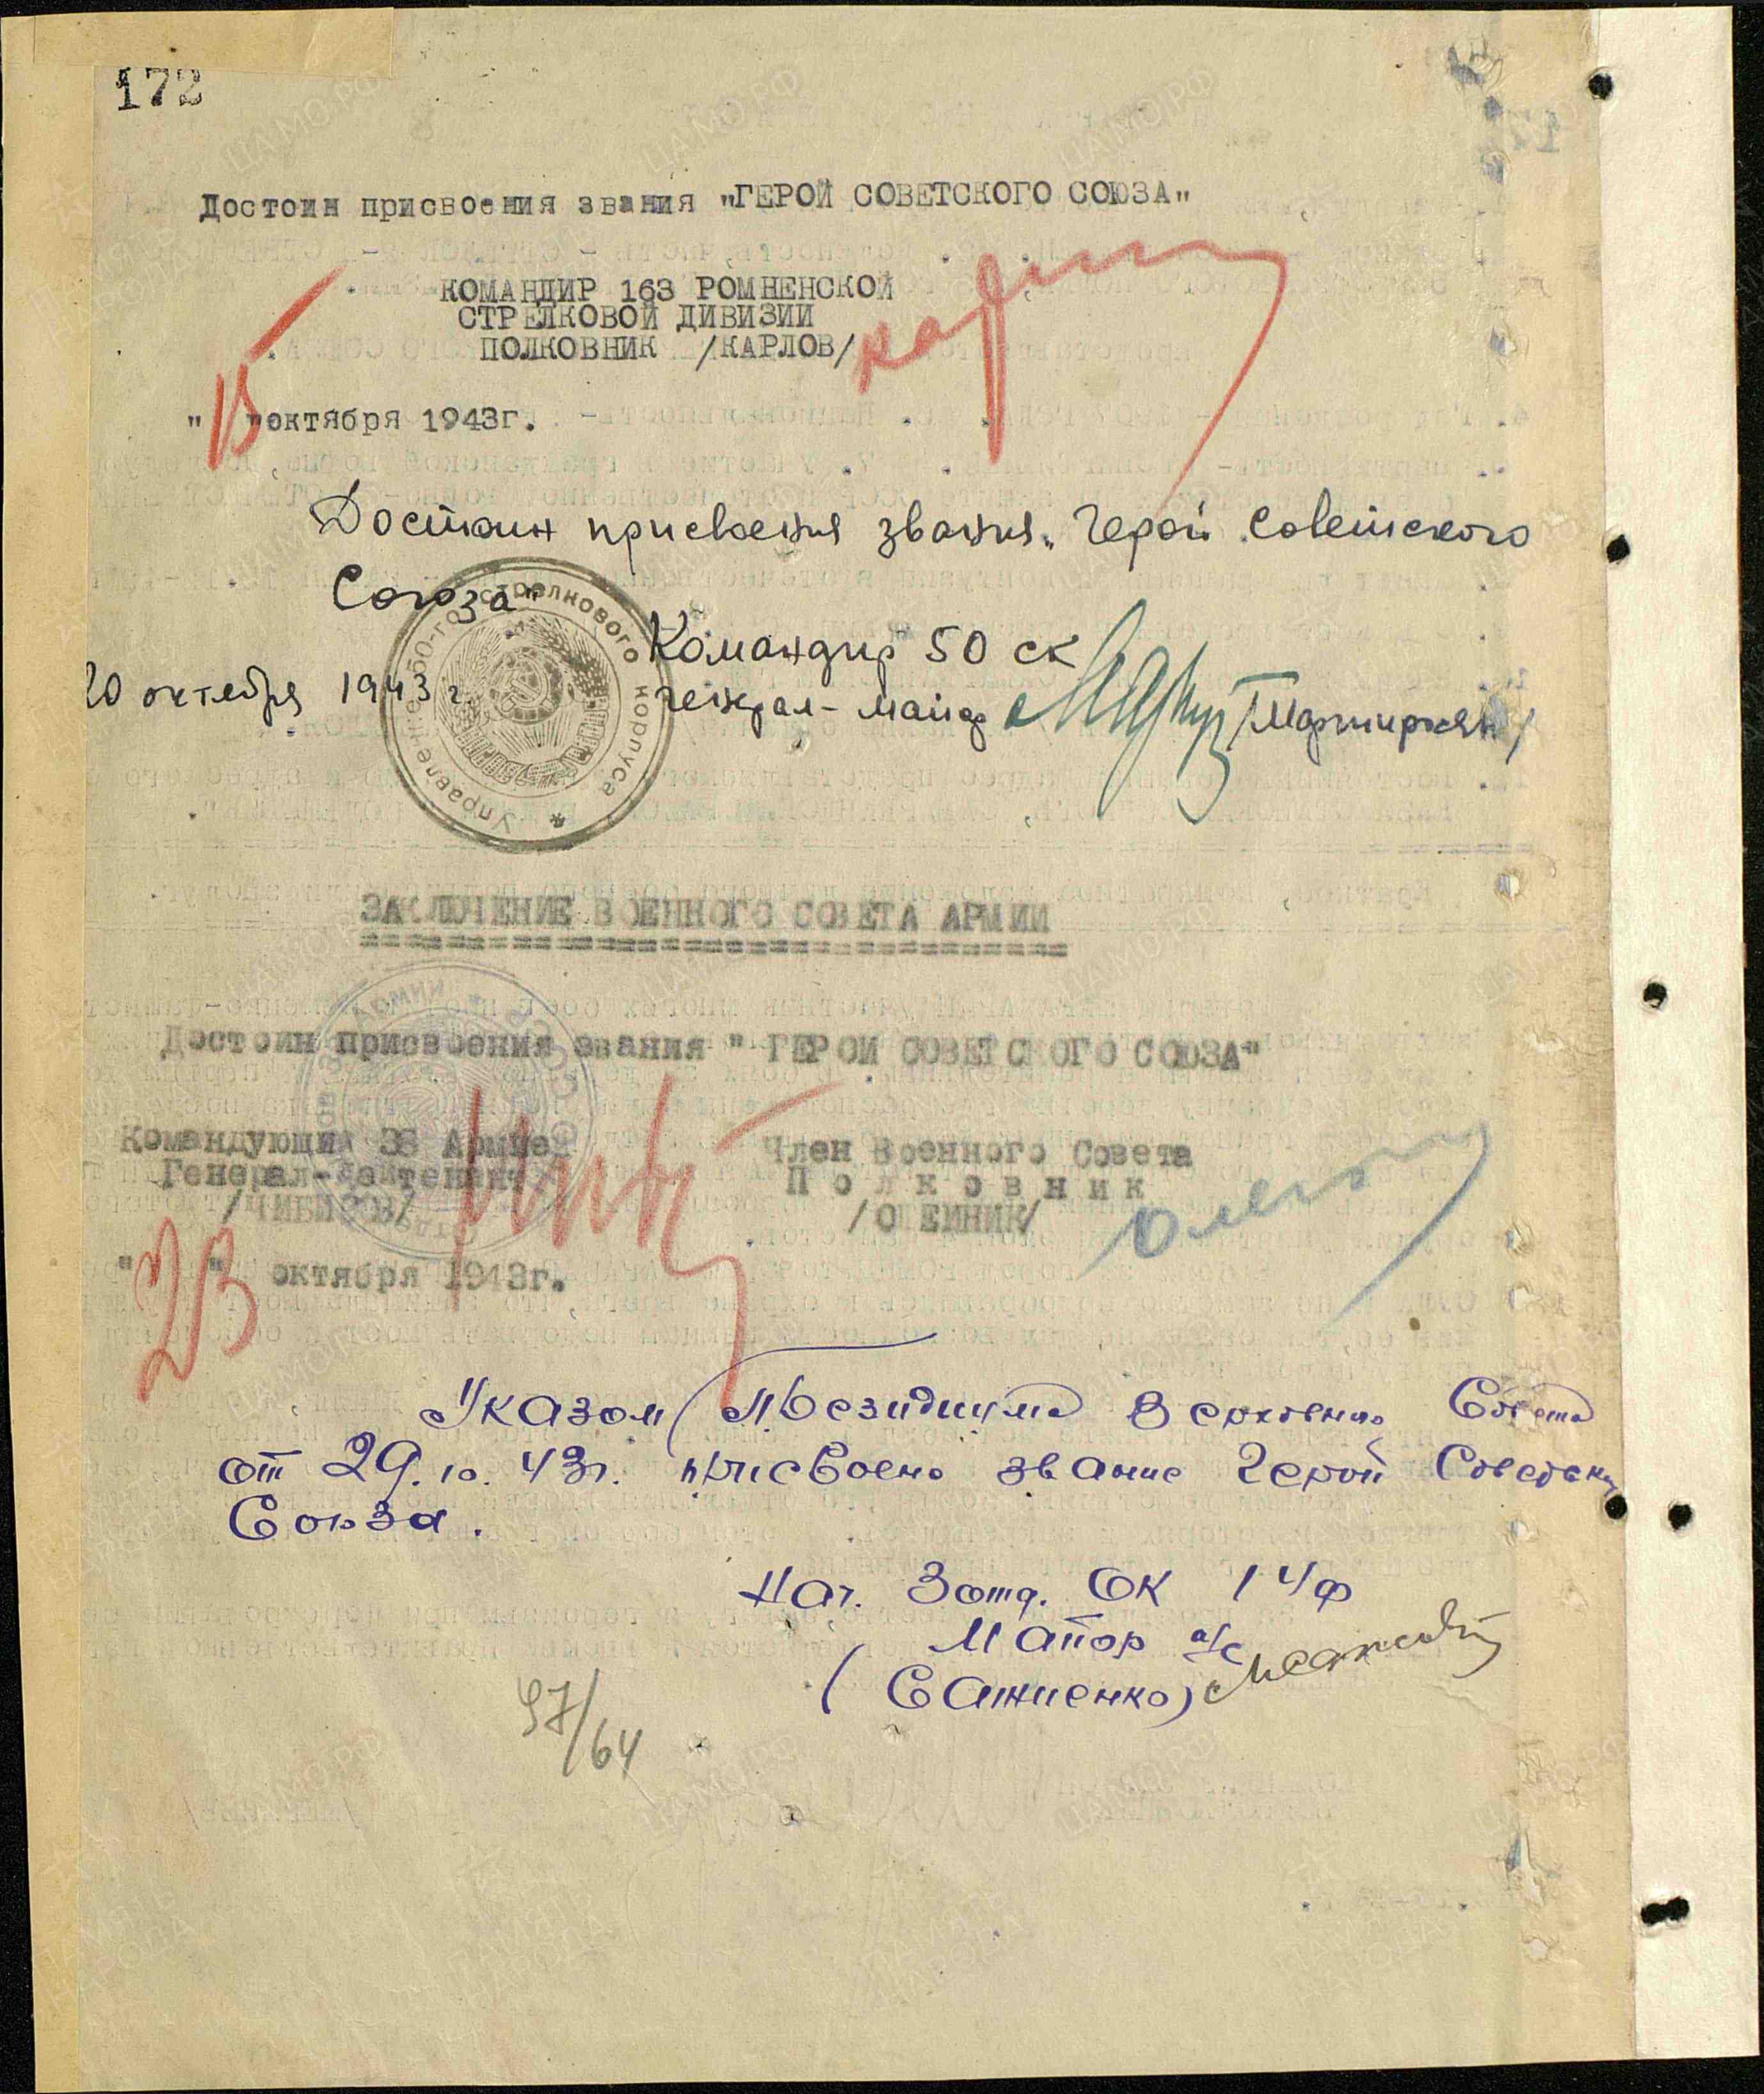 172
Достоин присвоения звания "ГЕРОЙ СОВЕТСКОГО СОЮЗА"
КОМАНДИР 163 РОМНЕНСКОЙ
СТРЕЛКОВОЙ ДИВИЗИИ
ПОЛКОВНИК /КАРЛОВ/
"15" октября 1943г.
Достоин присвоения звания „Герой Советского
Союза"
Командир 50 ск
20 октября 1943 г.
генерал-майор /Мартиросян/
Управление 50-го стрелкового корпуса
ЗАКЛЮЧЕНИЕ ВОЕННОГО СОВЕТА АРМИИ
Достоин присвоения звания " ГЕРОЙ СОВЕТСКОГО СОЮЗА"
Командующий 38 Армией
Генерал-Лейтенант
/ЧИБИСОВ/
Член Военного Совета
Полковник
/ОЛЕЙНИК/
"23" октября 1943г.
Указом Президиума Верховно Совета
от 29.10.43г. присвоено звание Герой Советск
Союза.
Нач. 3 отд. ОК 1 УФ
Майор а/с
97/64
ЦАМО.РФ